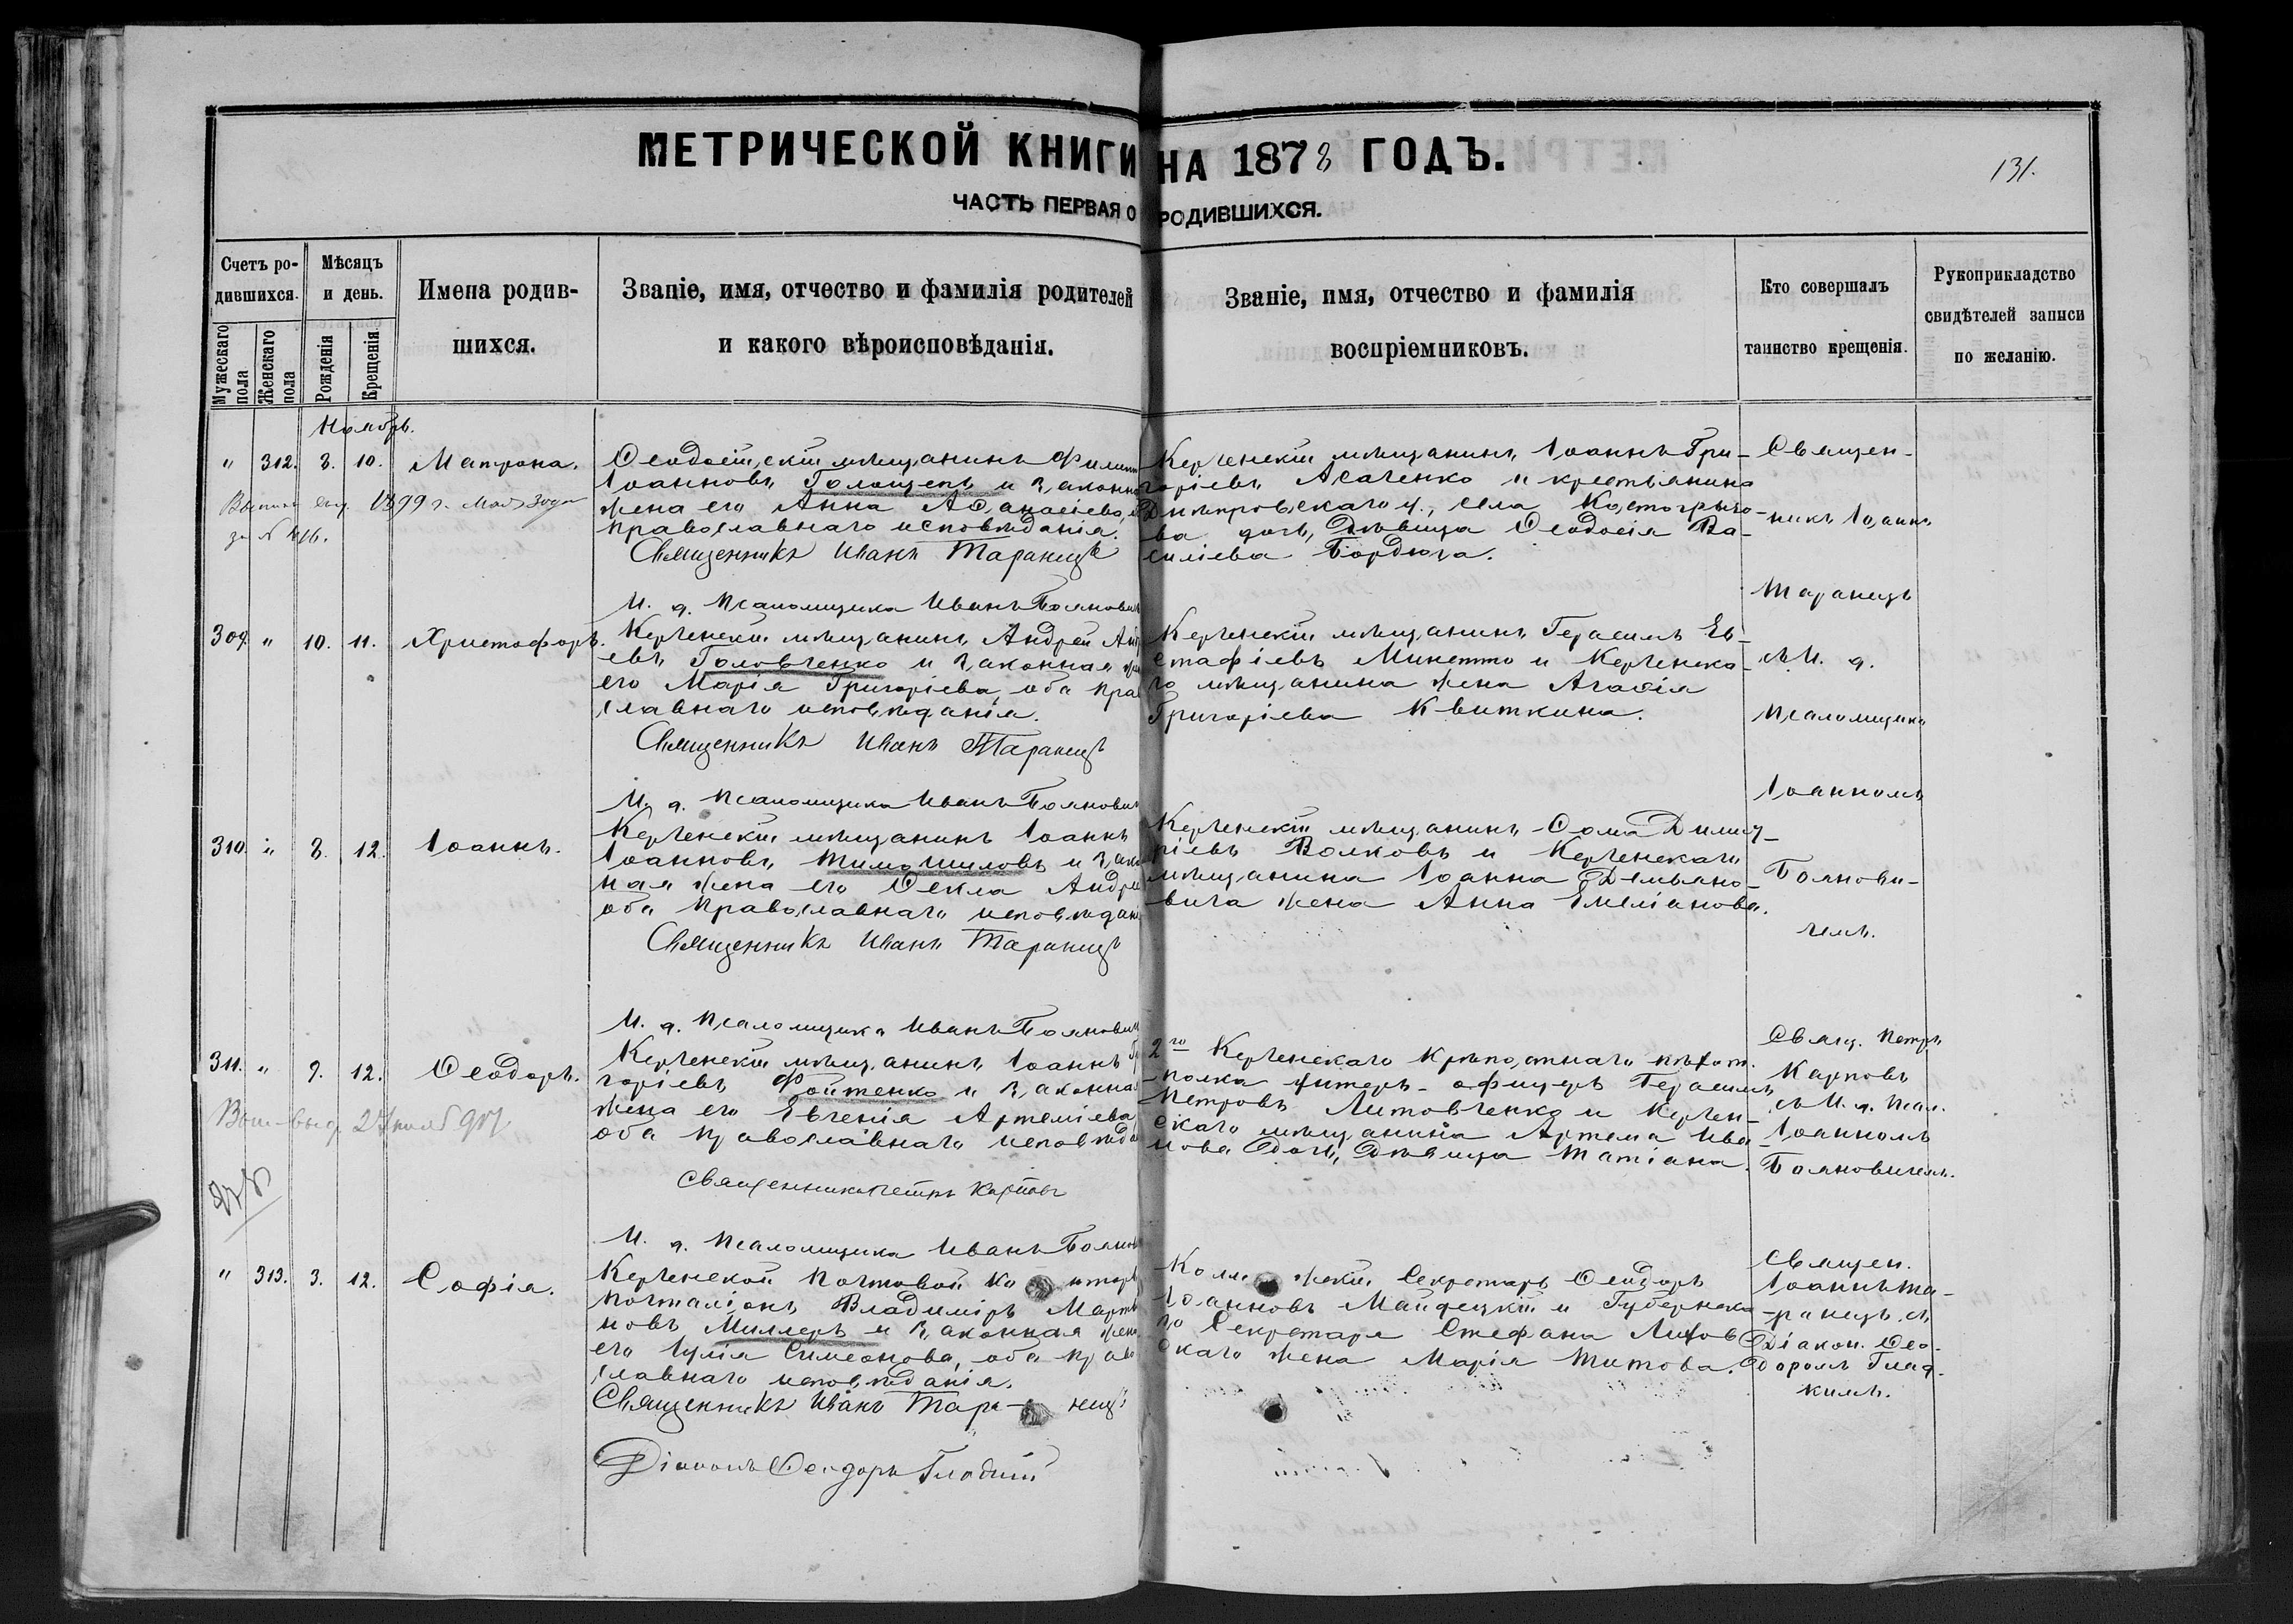 МЕТРИЧЕСКОЙ КНИГИ НА 1878 ГОДЪ.
131.
ЧАСТЬ ПЕРВАЯ О РОДИВШИХСЯ.
Счетъ ро-
дившихся.
Мужескаго пола
Женскаго пола
Мѣсяцъ
и день.
Рожденія
Крещенія
Имена родив-
шихся.
Званіе, имя, отчество и фамилія родителей
и какого вѣроисповѣданія.
Званіе, имя, отчество и фамилія
воспріемниковъ.
Кто совершалъ
таинство крещенія.
Рукоприкладство
свидѣтелей записи
по желанію.
Ноябрь.
" 312. 8. 10. Матрона.
1899 г.
за №
Ѳеодосійскій мѣщанинъ Филипп
Іоанновъ Голощепъ и законная
жена его Анна Аѳанасіева,
православнаго исповѣданія.
Священникъ Иванъ Таранецъ
И. д. псаломщика Иванъ Боянович
Керченскій мѣщанинъ Іоаннъ Гри-
горіевъ Асаченко и крестьянина
Днѣпровскаго у., села Костогрызо-
ва дочь, дѣвица Ѳеодосія Ва-
силіева Бордюга.
Священ-
никъ Іоаннъ
Таранецъ
съ И. д.
псаломщика
Іоанномъ
Боянови-
чемъ.
309. " 10. 11. Христофоръ.
Керченскій мѣщанинъ Андрей Анд
евъ Головченко и законная же
его Марія Григоріева, оба прав
славнаго исповѣданія.
Священникъ Иванъ Таранецъ
И. д. псаломщика Иванъ Боянович
Керченскій мѣщанинъ Герасимъ Ев-
стафіевъ Минетто и Керченска-
го мѣщанина жена Агаѳія
Григоріева Квиткина.
310. " 8. 12. Іоаннъ.
Керченскій мѣщанинъ Іоаннъ
Іоанновъ Тимошиловъ и закон
ная жена его Ѳекла Андре
оба православнаго исповѣдан
Священникъ Иванъ Таранецъ
И. д. псаломщика Иванъ Боянович
Керченскій мѣщанинъ Ѳома Димит-
ріевъ Волковъ и Керченскаго
мѣщанина Іоанна Демьяно-
вича жена Анна Емеліанова.
311. " 9. 12. Ѳеодоръ.
Керченскій мѣщанинъ Іоаннъ Гр
горіевъ Фойтенко и законная
жена его Евгенія Артеміева
оба православнаго исповѣда
Священникъ Петръ Карповъ
И. д. псаломщика Иванъ Боянов
2го Керченскаго крѣпостнаго пѣхот.
полка унтеръ-офицеръ Герасимъ
Петровъ Литовченко и Керчен-
скаго мѣщанина Артема Ива-
нова дочь, дѣвица Татіана.
Свящ. Петръ
Карповъ
съ И. д. псал.
Іоанномъ
Бояновичемъ.
" 313. 3. 12. Софія.
Керченской почтовой ко нторы
почталіонъ Владиміръ Марты
новъ Миллеръ и законная жена
его Іулія Симеонова, оба право
славнаго исповѣданія.
Священникъ Иванъ Тара- нецъ
Діаконъ Ѳеодоръ Гладкій
Колле жскій Секретарь Ѳеодоръ
Іоанновъ Майдецкій и Губернска-
го Секретаря Стефана Литов
скаго жена Марія Титова.
Священ.
Іоаннъ Та-
ранецъ съ
Діакон. Ѳео-
доромъ Глад-
кимъ.